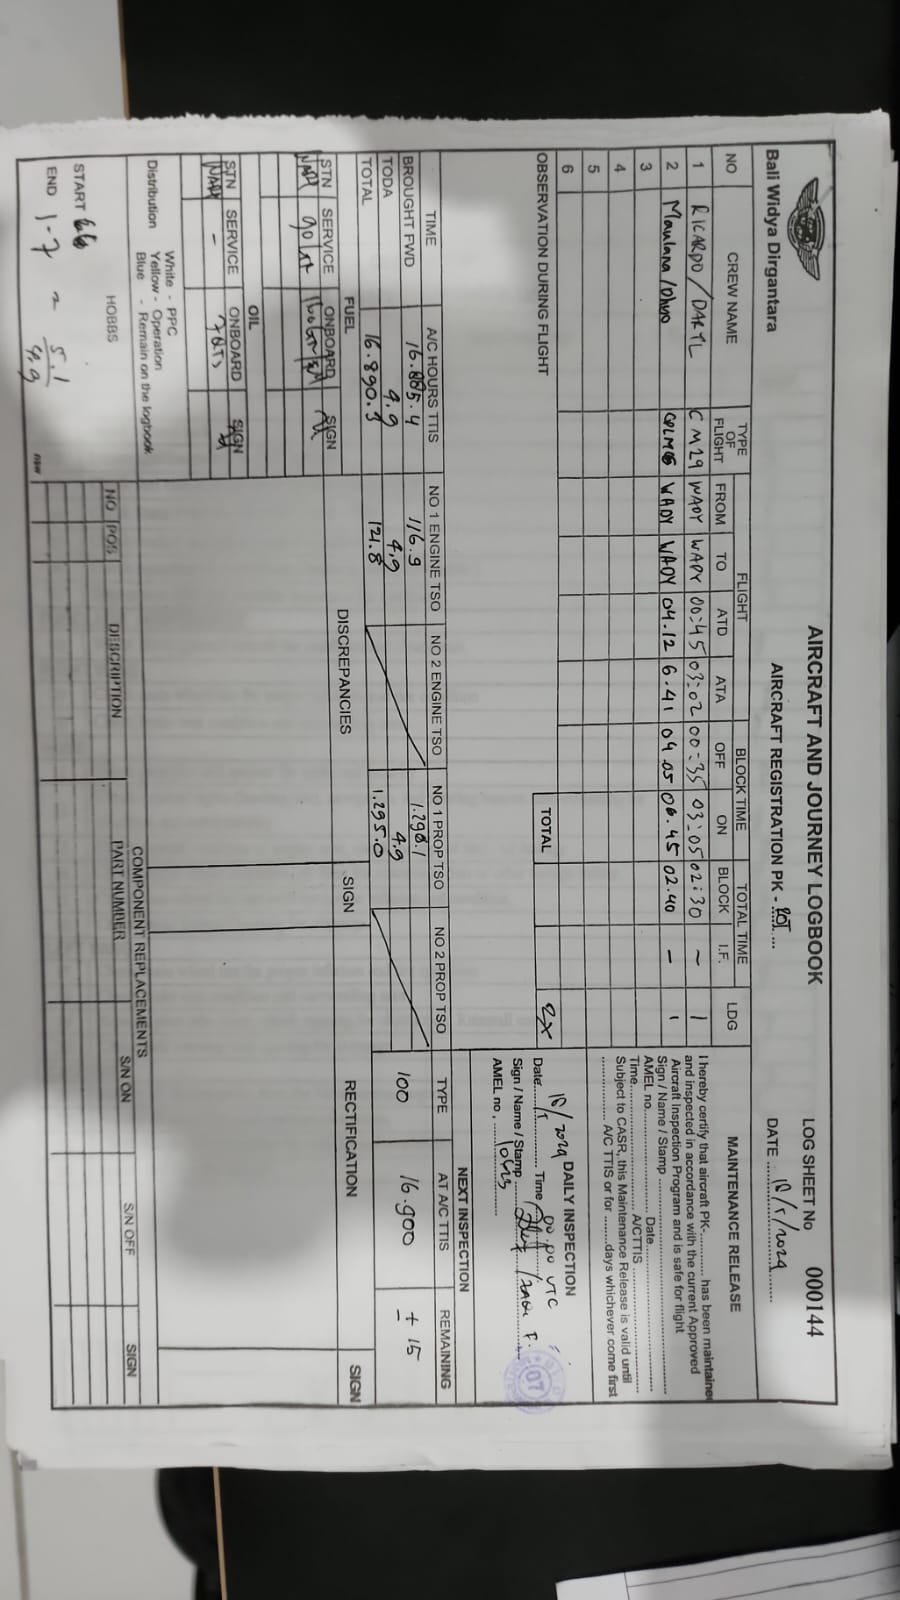 AIRCRAFT AND JOURNEY LOGBOOK
LOG SHEET No 000144
Bali Widya Dirgantara
AIRCRAFT REGISTRATION PK -
DATE 18/5/2024
NO CREW NAME TYPE OF FLIGHT FLIGHT FROM TO ATD ATA BLOCK TIME OFF ON TOTAL TIME BLOCK I.F. LDG
1 RICARDO / DARYL CM29 WADY WADY 00:45 03:02 00:35 03:05 02:30 ~ 1
2 Maulana / WADY WADY 04.12 6.41 04.05 06.45 02.40 - 1
3
4
5
6
OBSERVATION DURING FLIGHT
TOTAL 2X
MAINTENANCE RELEASE
I hereby certify that aircraft PK-............ has been maintained
and inspected in accordance with the current Approved
Aircraft Inspection Program and is safe for flight
Sign / Name / Stamp
AMEL no. Date
Time A/CTTIS
Subject to CASR, this Maintenance Release is valid until
A/C TTIS or for ........days whichever come first
DAILY INSPECTION
18/5 2024
Date Time 00.00 UTC
Sign / Name / Stamp
AMEL no.
07
TIME A/C HOURS TTIS NO 1 ENGINE TSO NO 2 ENGINE TSO NO 1 PROP TSO NO 2 PROP TSO
BROUGHT FWD 16.885.4 116.9
TODA 4.9 4.9 4.9
TOTAL 16.890.3 121.8 1.295.0
NEXT INSPECTION
TYPE AT A/C TTIS REMAINING
100 16.900 ± 15
FUEL
STN SERVICE ONBOARD SIGN
OIL
STN SERVICE ONBOARD SIGN
-
DISCREPANCIES SIGN RECTIFICATION SIGN
Distribution White - PPC
Yellow - Operation
Blue - Remain on the logbook
COMPONENT REPLACEMENTS
NO POS DESCRIPTION PART NUMBER S/N ON S/N OFF SIGN
HOBBS
START
END 1-7
5.1
4.9